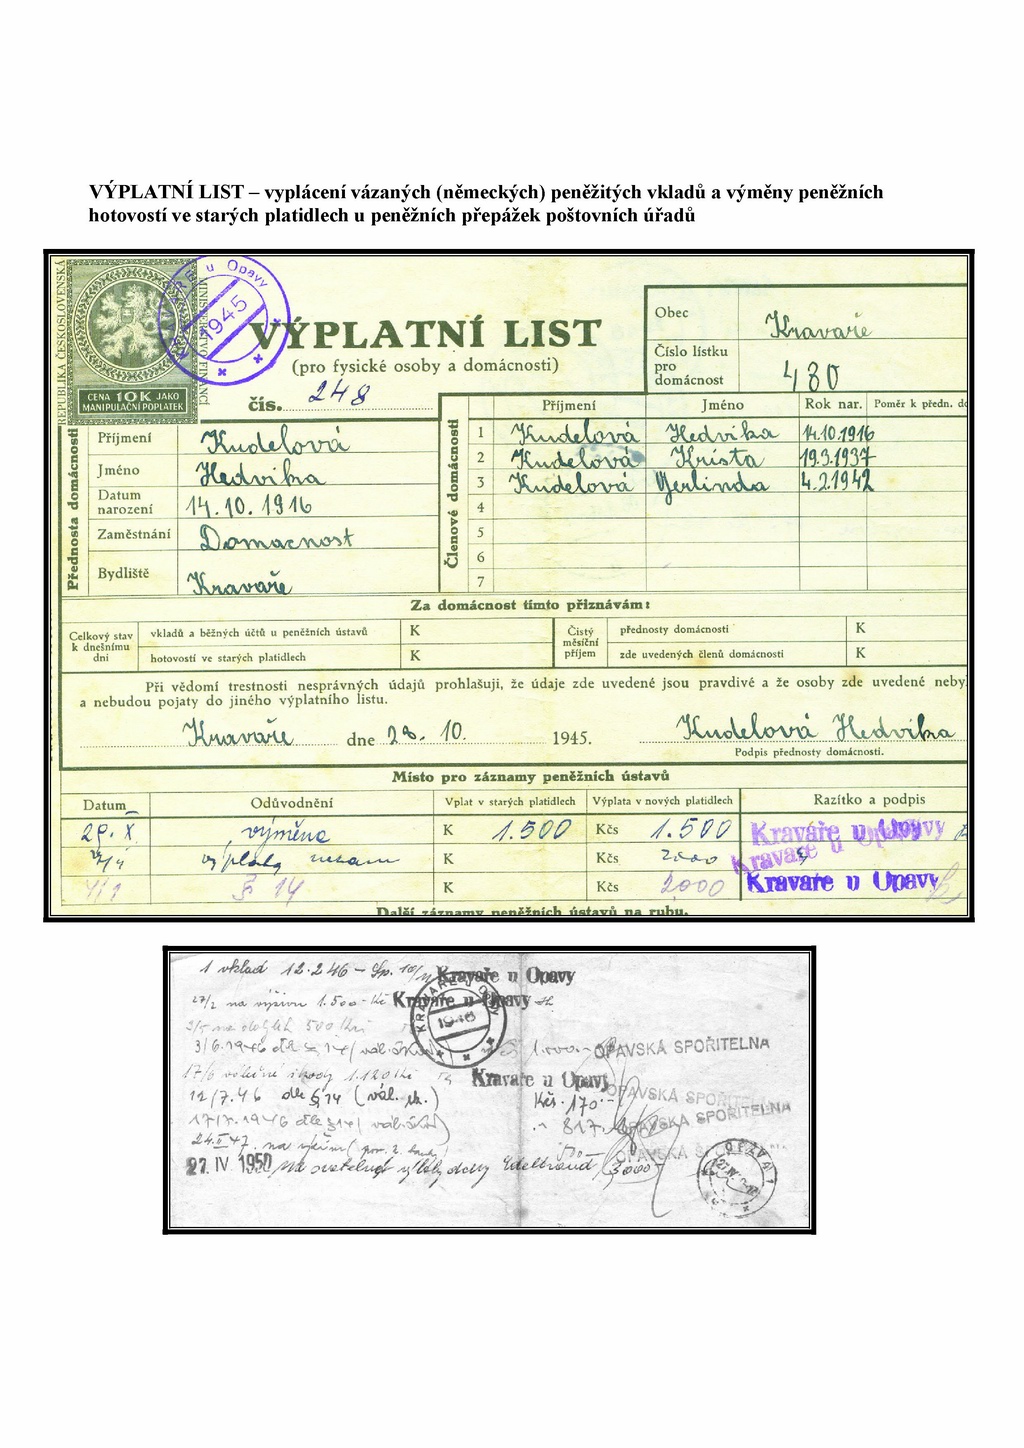 VÝPLATNÍ LIST – vyplácení vázaných (německých) peněžitých vkladů a výměny peněžních
hotovostí ve starých platidlech u peněžních přepážek poštovních úřadů
REPUBLIKA ČESKOSLOVENSKÁ
MINISTERSTVO FINANCÍ
CENA 10 K JAKO
MANIPULAČNÍ POPLATEK
u Opavy
1945
VÝPLATNÍ LIST
(pro fysické osoby a domácnosti)
čís. 248
Obec Kravaře
Číslo lístku
pro
domácnost 480
Přednosta domácnosti
Příjmení Kudelová
Jméno Hedvika
Datum
narození 14. 10. 1916
Zaměstnání Domacnost
Bydliště Kravaře
Členové domácnosti
Příjmení Jméno Rok nar. Poměr k předn. do
1 Kudelová Hedvika 14.10.1916
2 Kudelová Krista 19.3.1937
3 Kudelová Gerlinda 4.2.1942
4
5
6
7
Za domácnost tímto přiznávám:
Celkový stav
k dnešnímu
dni
vkladů a běžných účtů u peněžních ústavů K
hotovostí ve starých platidlech K
Čistý
měsíční
příjem
přednosty domácnosti K
zde uvedených členů domácnosti K
Při vědomí trestnosti nesprávných údajů prohlašuji, že údaje zde uvedené jsou pravdivé a že osoby zde uvedené neby
a nebudou pojaty do jiného výplatního listu.
Kravaře dne 28. 10. 1945. Kudelová Hedvika
Podpis přednosty domácnosti.
Místo pro záznamy peněžních ústavů
Datum Odůvodnění Vplat v starých platidlech Výplata v nových platidlech Razítko a podpis
29. X výměna K 1.500 Kčs 1.500 Kravaře u Opavy
výplata K Kčs 2000 Kravaře u Opavy
§ 14 K Kčs 2000 Kravaře u Opavy
Další záznamy peněžních ústavů na rubu.
1 vklad 12.2.46 Kravaře u Opavy
27/2 na výživu 1.500 Kravaře u Opavy
KRAVAŘE U OPAVY
1946
500
3/6.1946 dle § 14 1.000 OPAVSKÁ SPOŘITELNA
17/6 válečné škody 1.120 Kravaře u Opavy
12/7.46 dle § 14 (vál. šk.) Kčs 170 OPAVSKÁ SPOŘITELNA
17/7.1946 dle § 14 817 OPAVSKÁ SPOŘITELNA
24.II 47. na 500 OPAVSKÁ
27. IV. 1950 3000
OPAVA 1